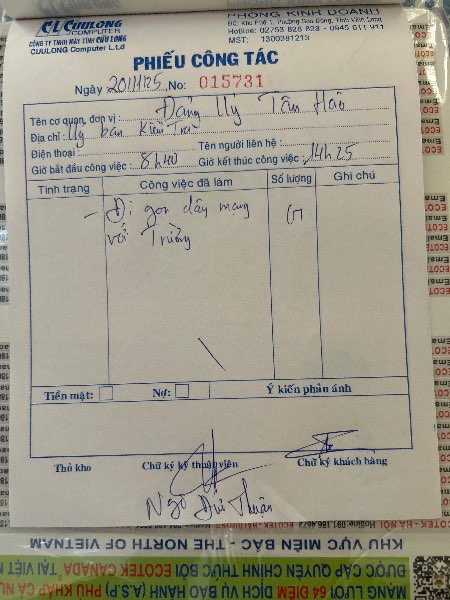 CL CUULONG
COMPUTER
CÔNG TY TNHH MÁY TÍNH CỬU LONG
CUULONG Computer L.t.d
PHÒNG KINH DOANH
Hotline: 02753 828 828 - 0945 611 911
MST: 1300381213
PHIẾU CÔNG TÁC
Ngày 20/11/25 No: 015731
Tên cơ quan, đơn vị: Đảng Ủy Tân Hào
Địa chỉ: Ủy ban Kiểm Tra
Điện thoại: Tên người liên hệ:
Giờ bắt đầu công việc: 8h00 Giờ kết thúc công việc: 14h25
Tình trạng Công việc đã làm Số lượng Ghi chú
- Đi gon dây mạng
với Trường
Tiền mặt: Nợ: Ý kiến phản ánh
Thủ kho Chữ ký kỹ thuật viên Chữ ký khách hàng
Ngô Đức Thuận
KHU VỰC MIỀN BẮC - THE NORTH OF VIETNAM
ĐƯỢC CẤP QUYỀN CHÍNH THỨC BỞI ECOTEK CANADA TẠI VIỆT
MẠNG LƯỚI 64 ĐIỂM DỊCH VỤ BẢO HÀNH (A.S.P) PHỦ KHẮP CẢ NƯ